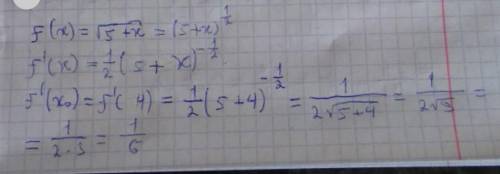 f(x) = √5+x = (5+x)^1/2
f'(x) = 1/2 (5+x)^-1/2
f'(x₀) = f'(4) = 1/2 (5+4)^-1/2 = 1/2√5+4 = 1/2√9 =
= 1/2·3 = 1/6